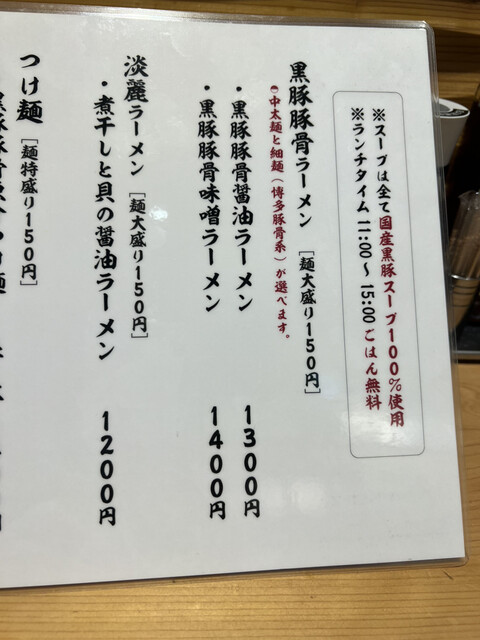 ※スープは全て国産黒豚スープ100%使用
※ランチタイム 11:00～15:00ごはん無料
黒豚豚骨ラーメン [麺大盛り150円]
中太麺と細麺(博多豚骨系)が選べます。
・黒豚豚骨醤油ラーメン 1300円
・黒豚豚骨味噌ラーメン 1400円
淡麗ラーメン [麺大盛り150円]
・煮干しと貝の醤油ラーメン 1200円
つけ麺 [麺特盛り150円]